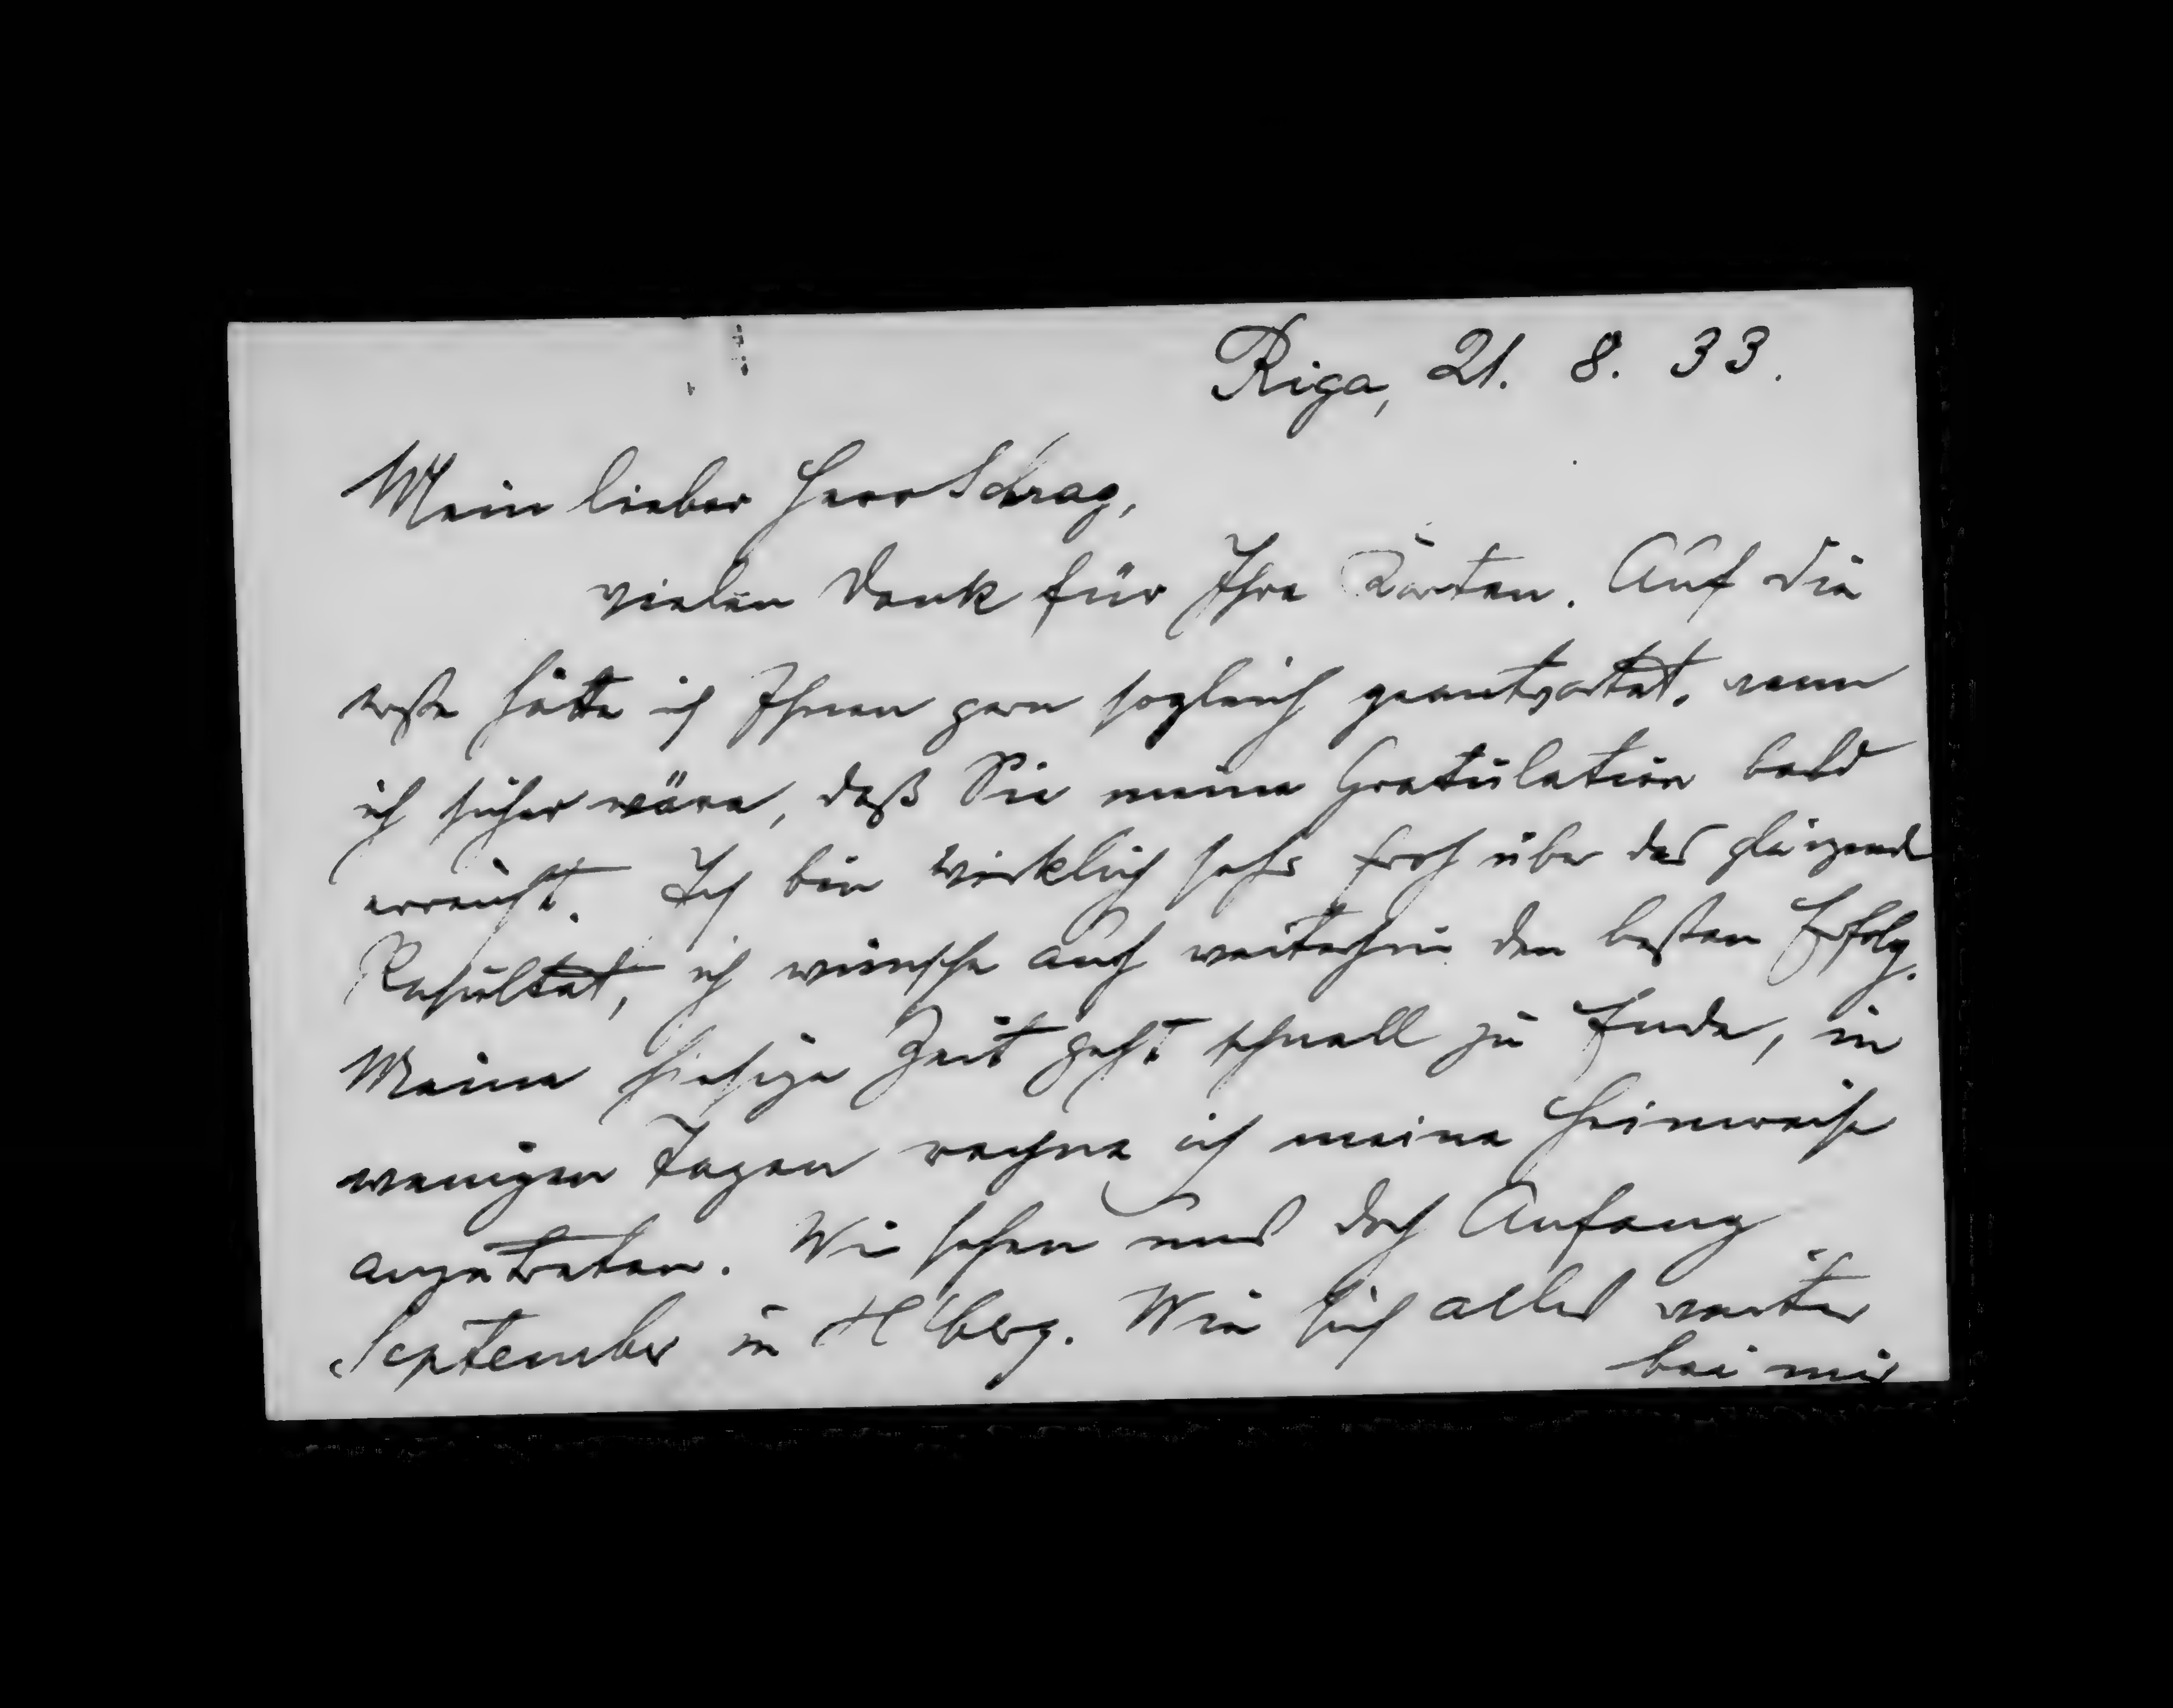 Riga, 21. 8. 33.
Mein lieber Herr Schrag,
vielen Dank für Ihre Karten. Auf die
erste hätte ich Ihnen gern sogleich geantwortet, wenn
ich sicher wäre, daß Sie meine Gratulation bald
erreicht. Ich bin wirklich sehr froh über das glänzende
Resultat, ich wünsche auch weiterhin den besten Erfolg.
Meine hiesige Zeit geht schnell zu Ende, in
wenigen Tagen rechne ich meine Heimreise
anzutreten. Wir sehen uns doch Anfang
September in H'berg. Wie sich alles weiter
bei mir